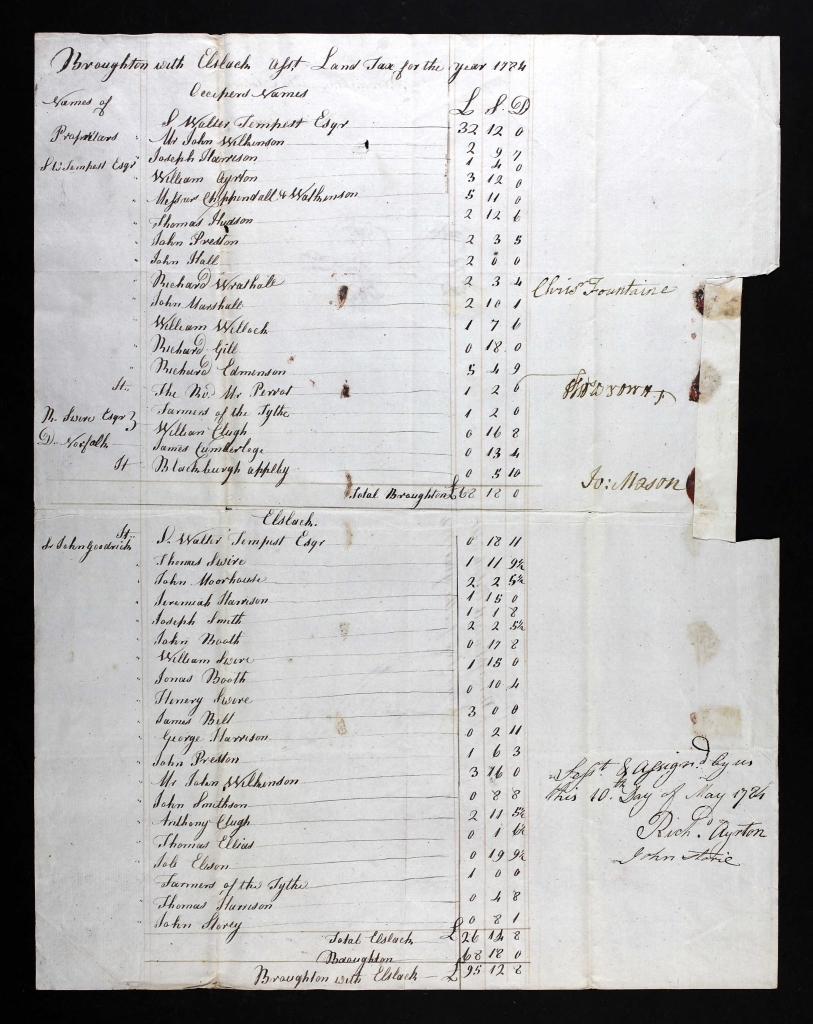 Broughton with Elslack Asst Land Tax for the year 1784
Names of Occupers Names £ S D
S Walter Tempest Esqr 32 12 0
Proprietars " Mr John Wilkinson 2 9 7
Joseph Harrison 1 4 0
Sr Wr Tempest Esqr William Ayrton 3 12 0
" Messur Chippendall & Wathinson 5 11 0
" Thomas Hudson 2 12 6
" John Preston 2 3 5
" John Hall 2 0 0
" Richard Wrathall 2 3 4
Chrisr Fountaine
" John Marshall 2 10 1
" William Willock 1 7 6
" Richard Gill 0 18 0
" Richard Edmenson 5 4 9
St.. The Rd. Mr Perrot 1 2 6
" Farmers of the Tythe 1 2 0
R. Swire Esqr William Clugh 0 16 8
D. Norfolk James Cumberlege 0 13 4
St Blackburgh appleby 0 5 10
Jo: Mason
Total Broughton £ 68 18 0
Elslack.
St.. Sr John Goodrick S. Walter Tempest Esqr 0 18 11
" Thomas Swire 1 11 9½
" John Moorhouse 2 2 5½
" Jeremiah Harrison 1 15 0
" Joseph Smith 1 1 8
" John Booth 2 2 5½
" William Swire 0 17 8
" Jonas Booth 1 15 0
" Henery Swire 0 10 4
" James Bell 3 0 0
" George Harrison 0 2 11
" John Preston 1 6 3
" Mr John Wilkinson 3 16 0
" John Smithson 0 8 8
" Anthony Clugh 2 11 5½
" Thomas Ellias 0 1 6½
" Job Elison 0 19 9½
" Farmers of the Tythe 1 0 0
" Thomas Harrison 0 4 8
" John Storey 0 8 1
Sesst & Assign'd by us
this 10th Day of May 1784
Richd. Ayrton
John Storie
Total Elslack £ 26 14 8
Broughton 68 18 0
Broughton with Elslack £ 95 12 8